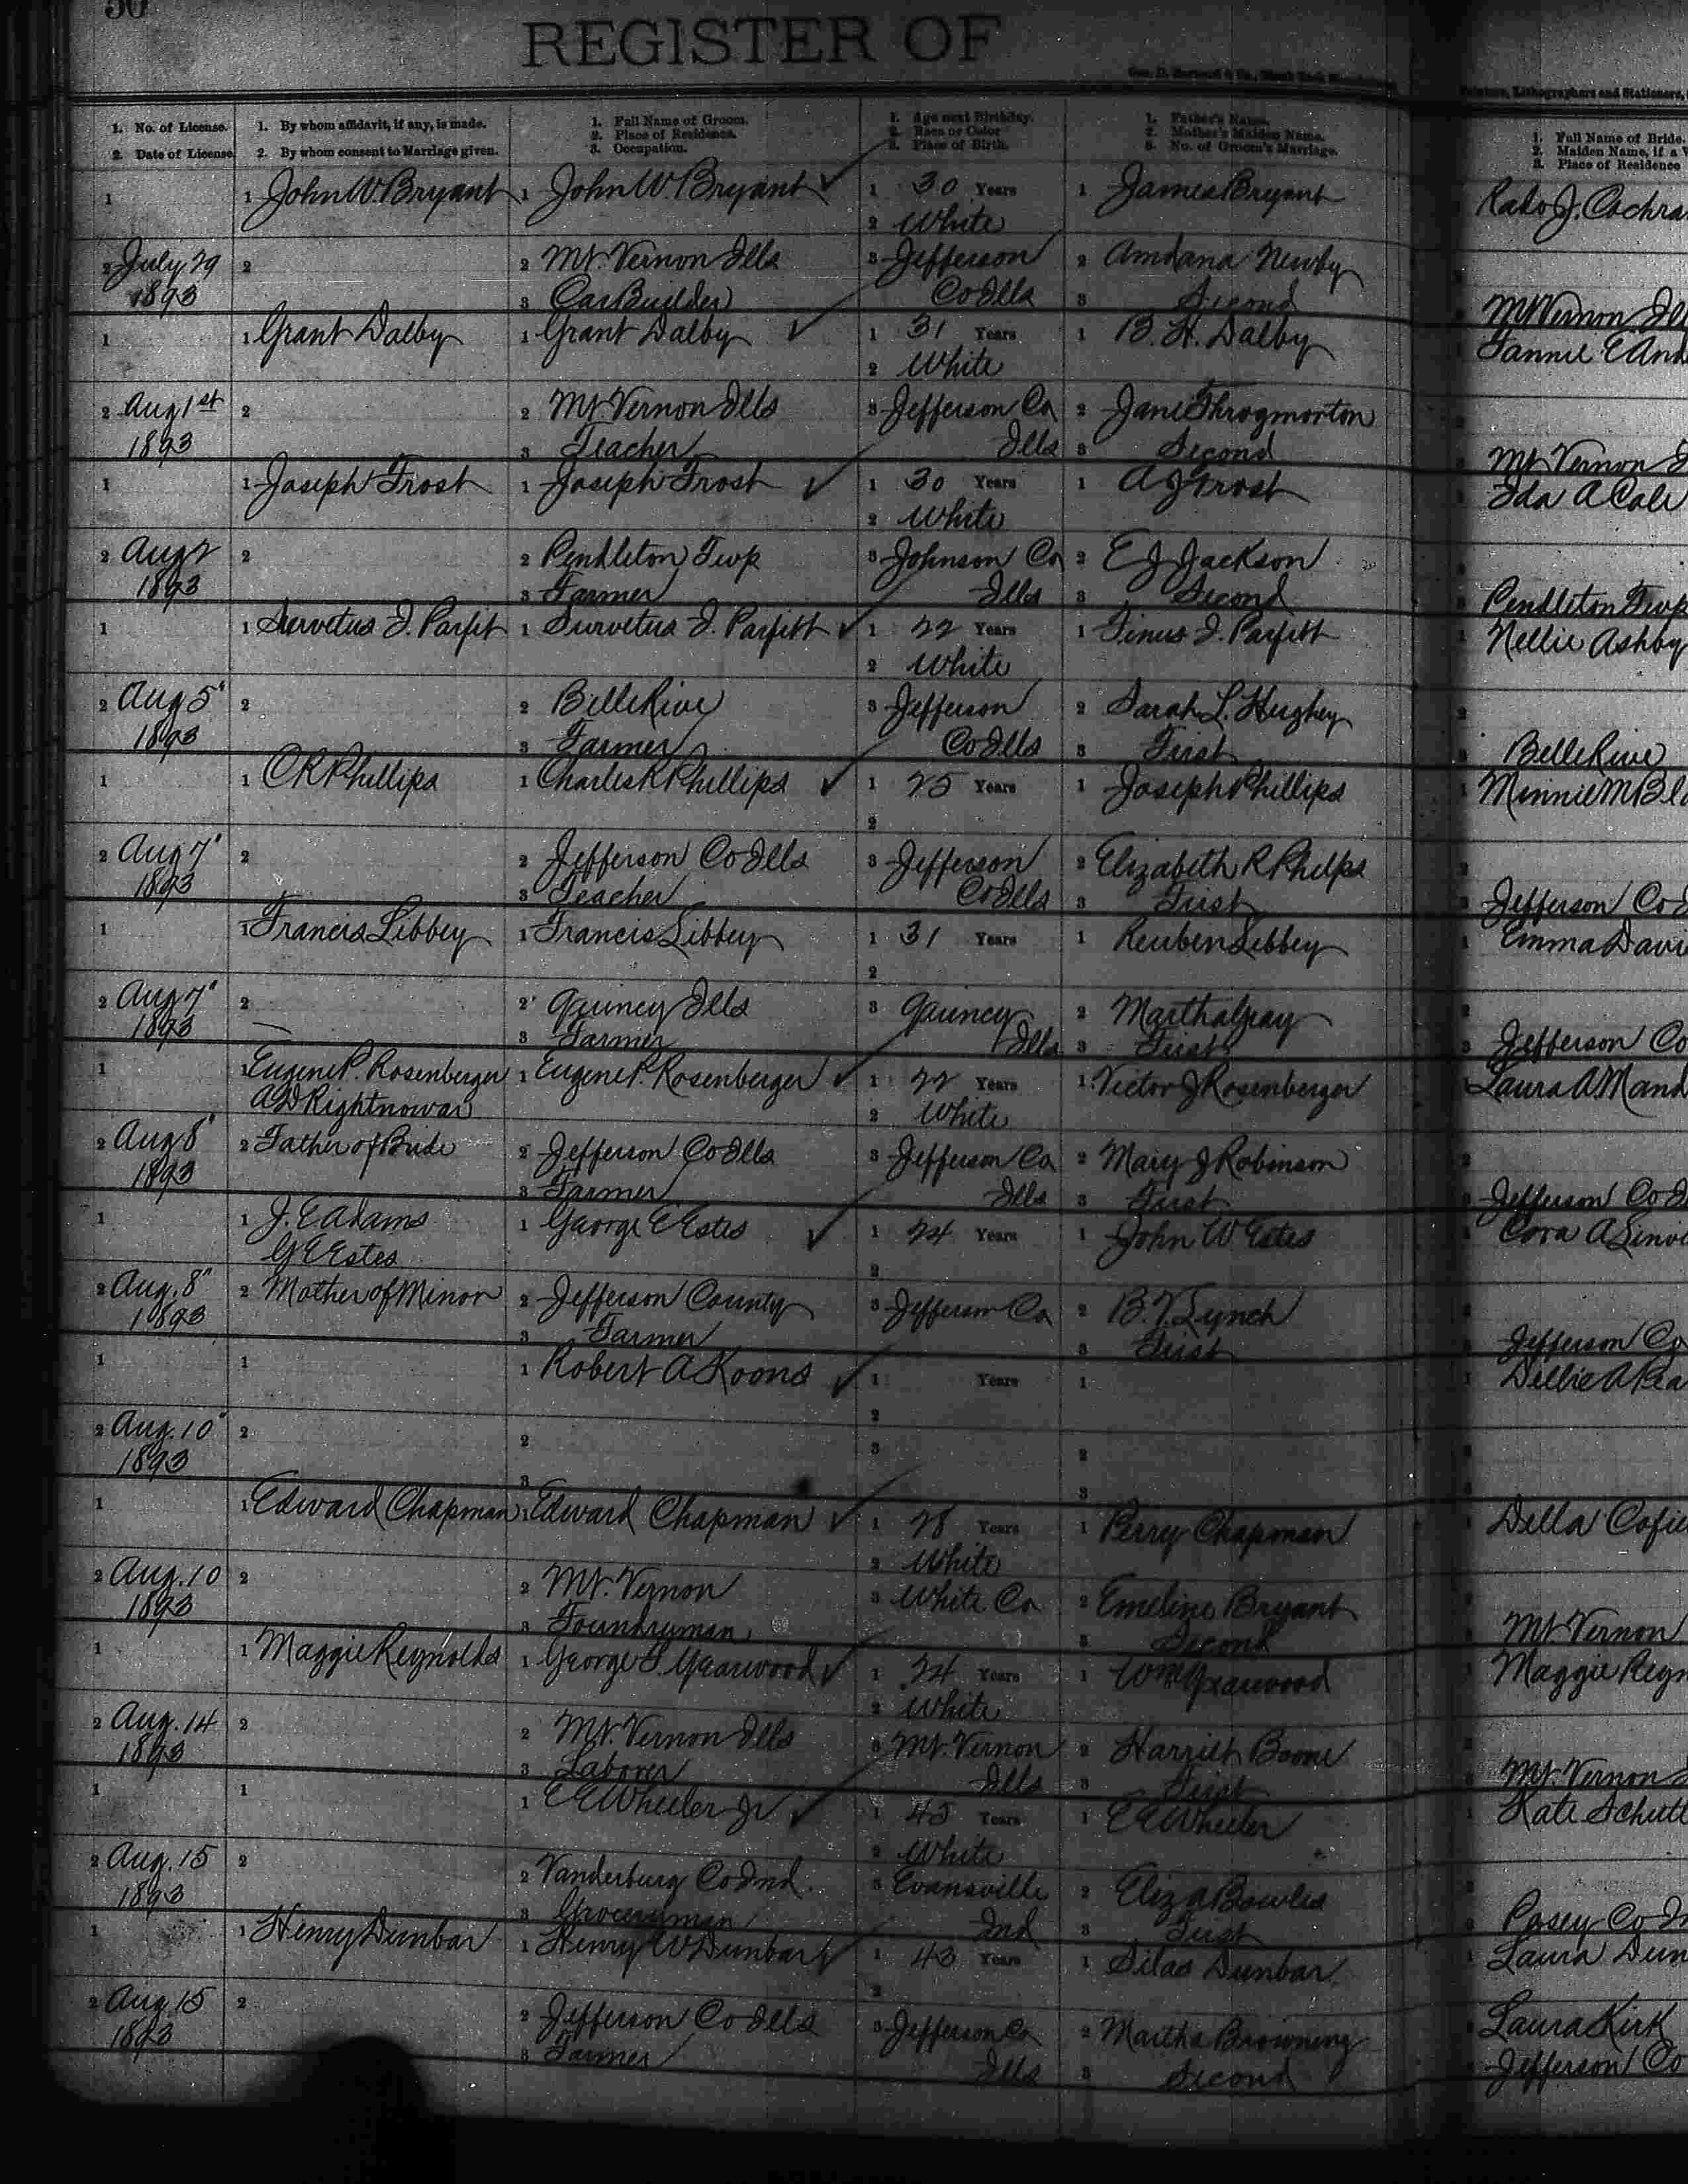 50
REGISTER OF
Printers, Lithographers and Stationers,
1. No. of License.
2. Date of License
1. By whom affidavit, if any, is made.
2. By whom consent to Marriage given.
1. Full Name of Groom.
2. Place of Residence.
3. Occupation.
1. Age next Birthday.
2. Race or Color
3. Place of Birth.
1. Father's Name.
2. Mother's Maiden Name.
3. No. of Groom's Marriage.
1. Full Name of Bride.
2. Maiden Name, if a W
3. Place of Residence
1 1 John W. Bryant 1 John W. Bryant 1 30 Years 1 James Bryant J. Cochra
2 White
2 July 29 2 2 Mt. Vernon Ills 3 Jefferson 2 Newby
1893 3 Car Builder Co Ills 3 Second Mt Vernon Ill
1 1 Grant Dalby 1 Grant Dalby 1 31 Years 1 B. H. Dalby Fannie E And
2 White
2 Aug 1st 2 2 Mt Vernon Ills 3 Jefferson Co 2 Jane Throgmorton
1893 3 Teacher Ills 3 Second Mt Vernon I
1 1 Joseph Frost 1 Joseph Frost 1 30 Years 1 A J Frost Ida A Cole
2 White
2 Aug 2 2 2 Pendleton Twp 3 Johnson Co 2 E J Jackson
1893 3 Farmer Ills 3 Second Pendleton Twp
1 1 Survetus J. Parfit 1 Survetus J. Parfitt 1 22 Years 1 J. Parfitt Nellie Ashby
2 White
2 Aug 5" 2 2 Belle Rive 3 Jefferson 2 Sarah L. Hughey
1893 3 Farmer Co Ills 3 First Belle Rive
1 1 C R Phillips 1 Charles R Phillips 1 25 Years 1 Joseph Phillips Minnie M Bla
2
2 Aug 7" 2 2 Jefferson Co Ills 3 Jefferson 2 Elizabeth R Phelps
1893 3 Teacher Co Ills 3 First Jefferson Co I
1 1 Francis Libbey 1 Francis Libbey 1 31 Years 1 Reuben Libbey Emma Davi
2
2 Aug 7" 2 2 Quincy Ills 3 Quincy 2 Martha Gray
1893 3 Farmer Ills 3 First Jefferson Co
1 1 Eugene P. Rosenberger 1 Eugene P. Rosenberger 1 22 Years 1 Victor J Rosenberger Laura A Mand
A D Rightnowar 2 White
2 Aug 8" 2 Father of Bride 2 Jefferson Co Ills 3 Jefferson Co 2 Mary J Robinson
1893 3 Farmer Ills 3 First Jefferson Co I
1 1 J. E Adams 1 George E Estes 1 24 Years 1 John W Estes Cora A Linvi
G E Estes 2
2 Aug. 8" 2 Mother of Minor 2 Jefferson County 3 Jefferson Co 2 B. T. Lynch
1893 3 Farmer 3 First Jefferson Co
1 1 1 Robert A Koons 1 Years 1 Dellie A Pea
2
2 Aug. 10" 2 2 3 2
1893 3 3
1 1 Edward Chapman 1 Edward Chapman 1 28 Years 1 Perry Chapman Della Cofie
2 White
2 Aug. 10 2 2 Mt. Vernon 3 White Co 2 Emeline Bryant
1893 3 Foundryman 3 Second Mt Vernon
1 1 Maggie Reynolds 1 George F. Yearwood 1 24 Years 1 Wm Yearwood Maggie Reyn
2 White
2 Aug. 14 2 2 Mt. Vernon Ills 3 Mt. Vernon 2 Harriet Boone
1893 3 Laborer Ills 3 First Mt. Vernon I
1 1 1 E E Wheeler Jr 1 45 Years 1 E E Wheeler Kate Schutt
2 White
2 Aug. 15 2 2 Vanderburg Co Ind. 3 Evansville 2 Eliza Bowles
1893 3 Groceryman Ind 3 First Posey Co In
1 1 Henry Dunbar 1 Henry W Dunbar 1 43 Years 1 Silas Dunbar Laura Dun
2
2 Aug 15 2 2 Jefferson Co Ills 3 Jefferson Co 2 Martha Browning Laura Kirk
1893 3 Farmer Ills 3 Second Jefferson Co